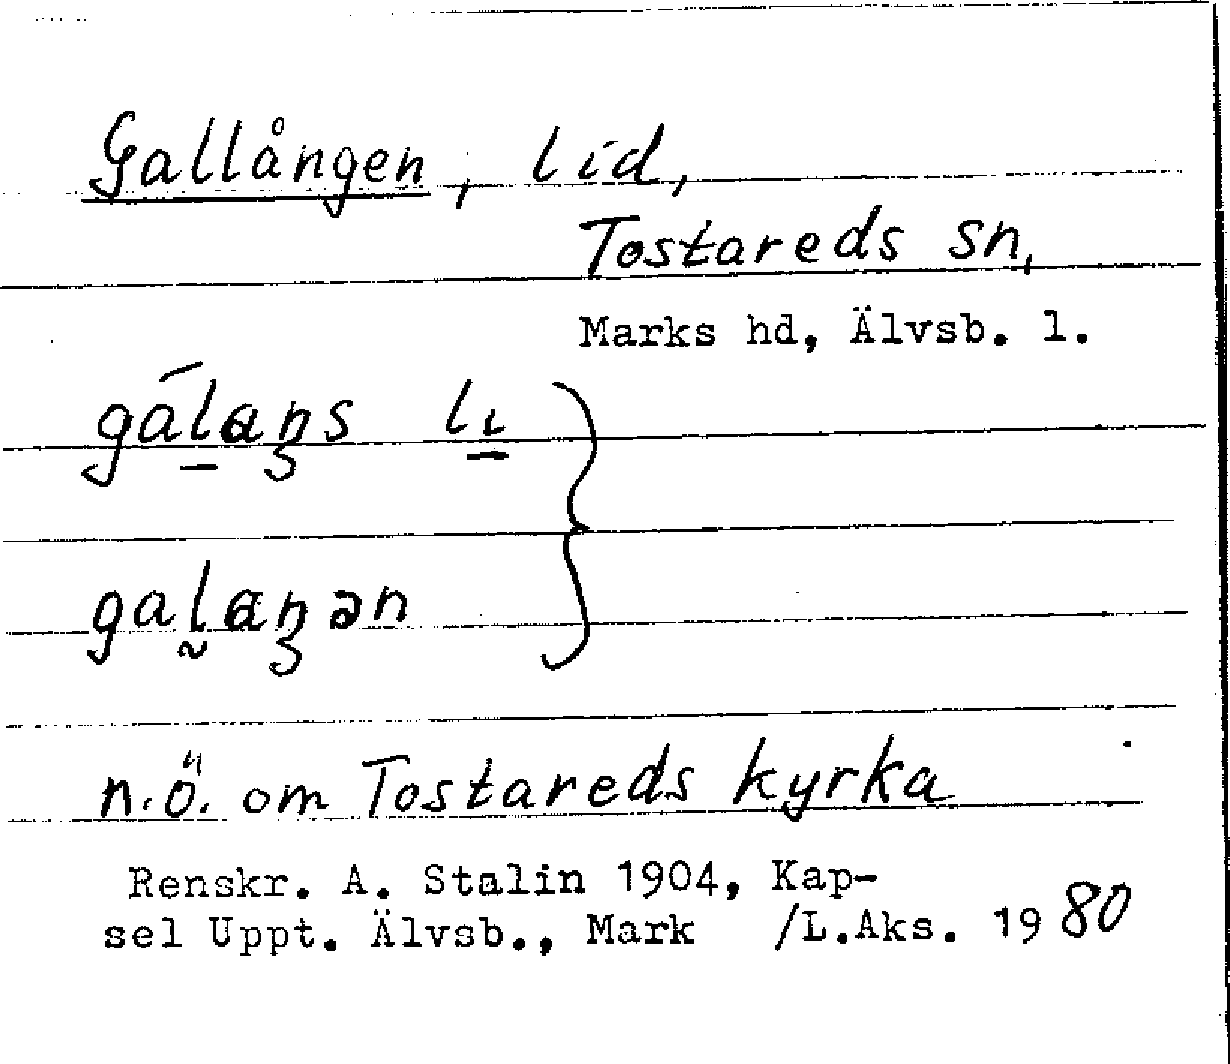 Gallången, lid,
Tostareds sn,
Marks hd, Älvsb. l.
gálaŋs lɩ
galaŋən
n.ö. om Tostareds kyrka
Renskr. A. Stalin 1904, Kap-
sel Uppt. Älvsb., Mark /L.Aks. 1980